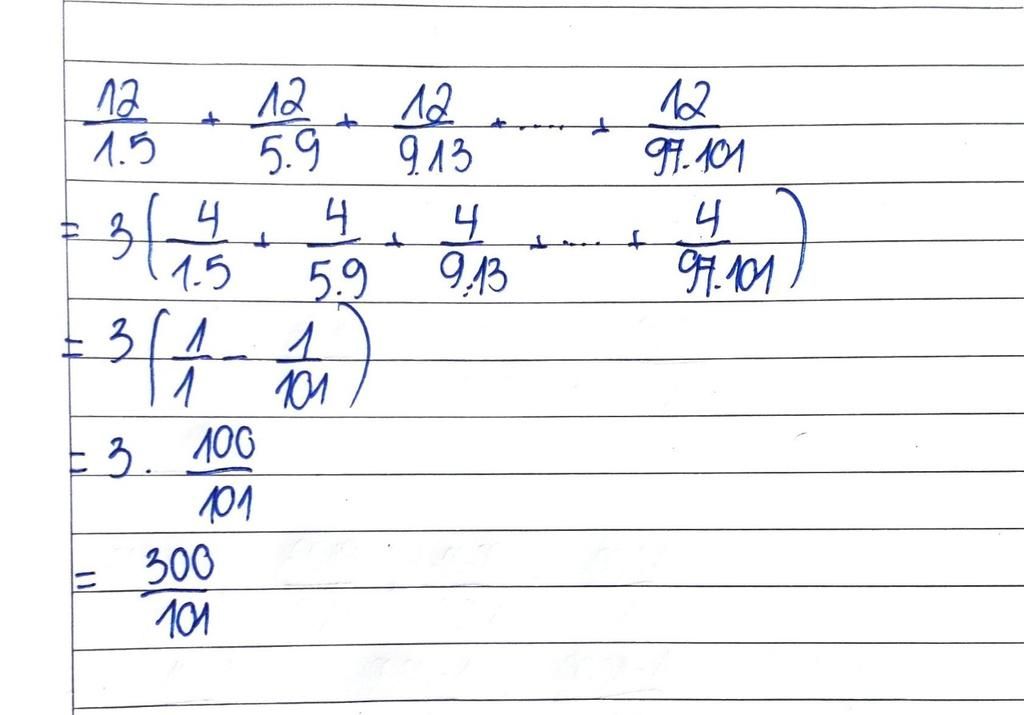 12/1.5 + 12/5.9 + 12/9.13 + .... + 12/97.101
= 3(4/1.5 + 4/5.9 + 4/9.13 + .... + 4/97.101)
= 3(1/1 - 1/101)
= 3. 100/101
= 300/101